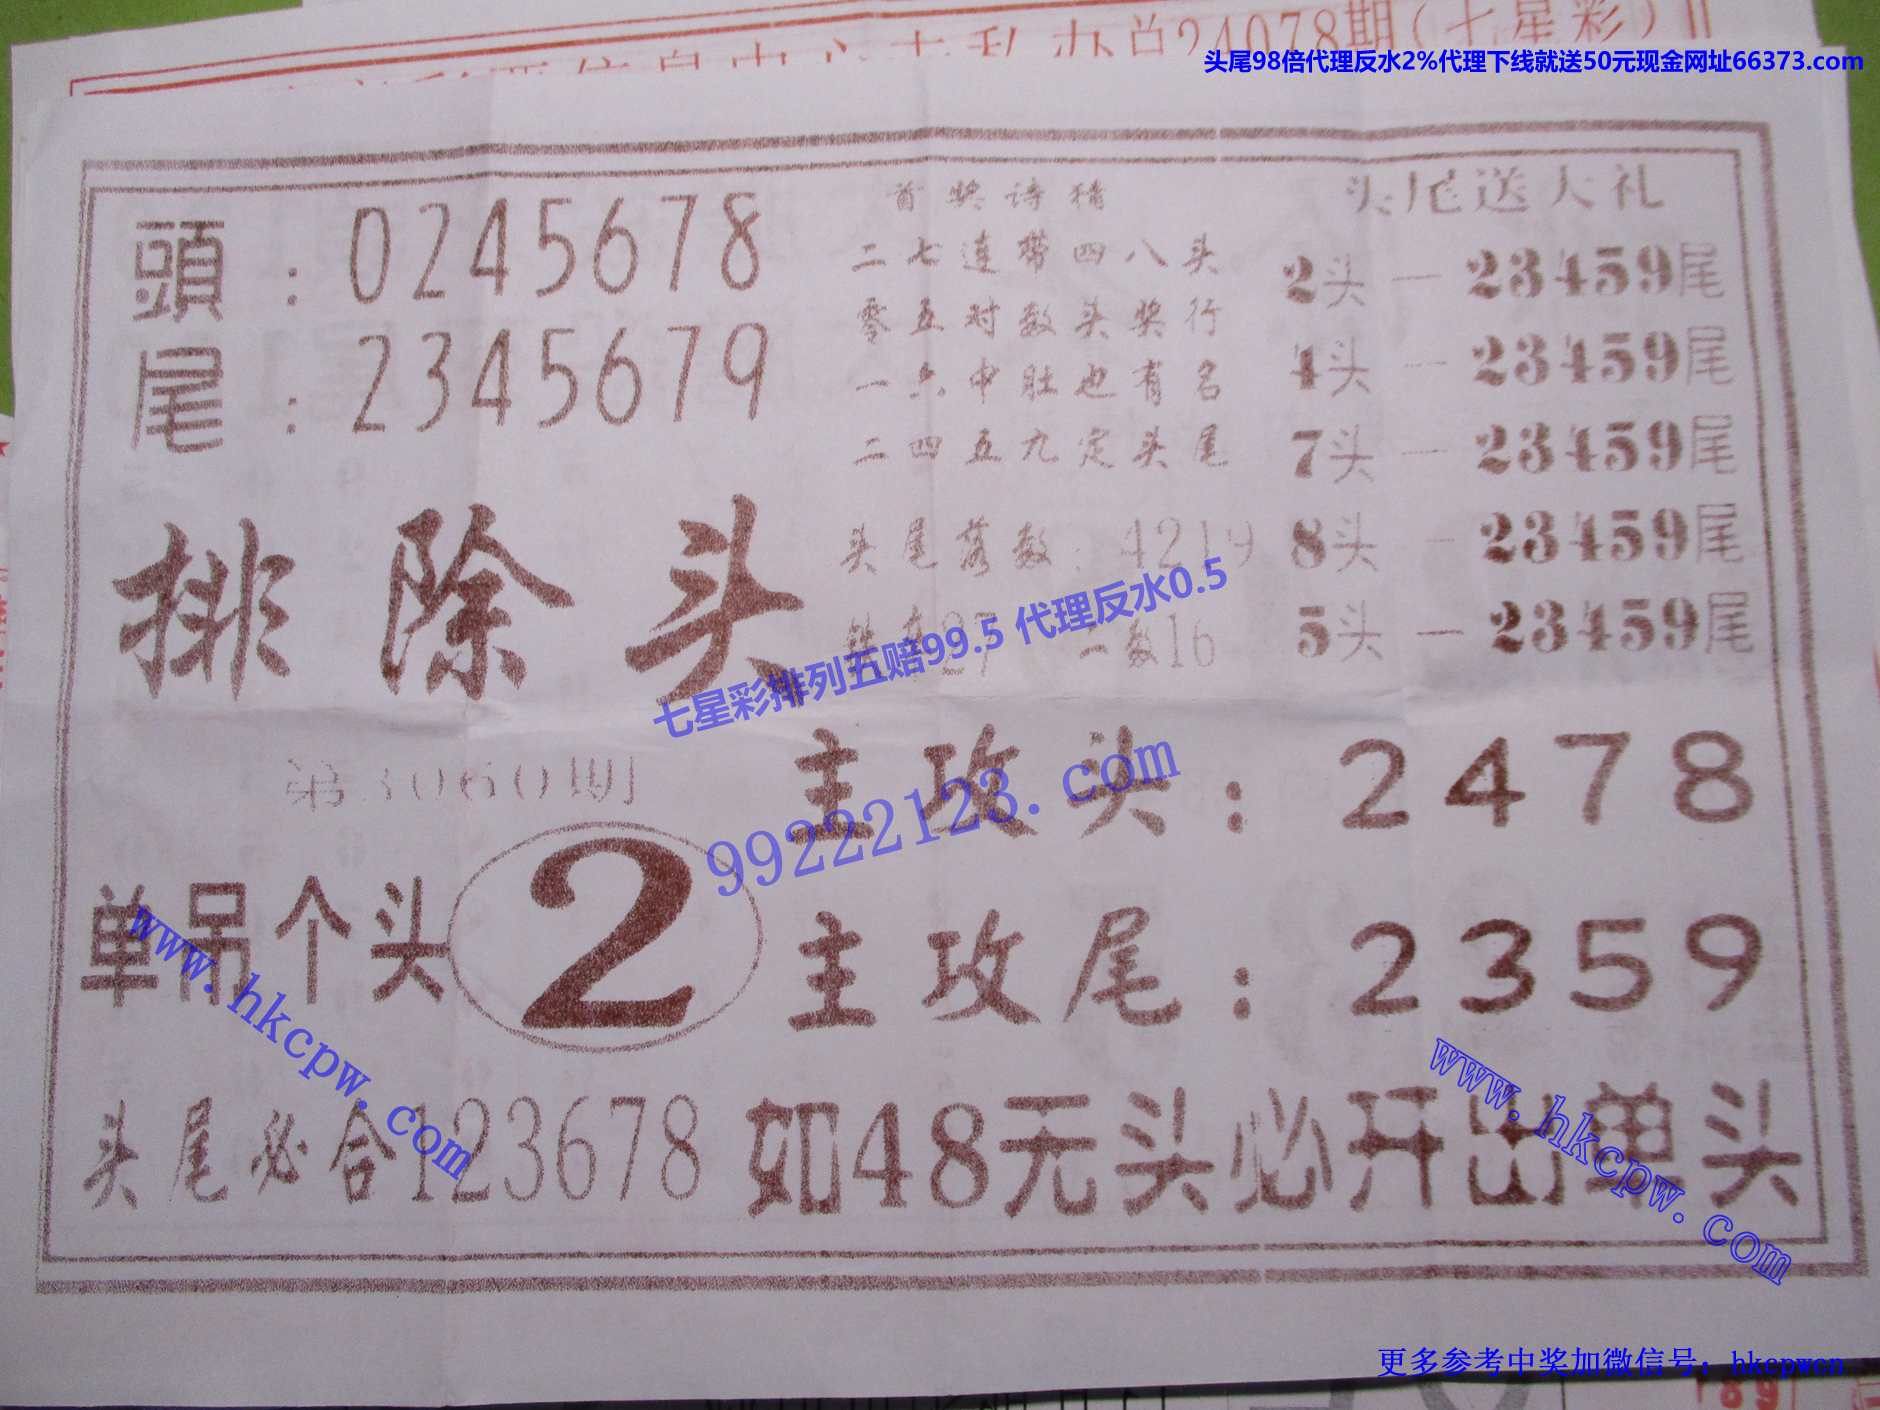 总24078期(七星彩)
头尾98倍代理反水2%代理下线就送50元现金网址66373.com
頭：0245678
尾：2345679
首奖诗猜
二七连带四八头
零五对数头奖行
一六中肚也有名
二四五九定头尾
头尾落数：4219
二数16
头尾送大礼
2头一23459尾
4头一23459尾
7头一23459尾
8头一23459尾
5头一23459尾
排除头
七星彩排列五赔99.5 代理反水0.5
99222123.com
第3060期
单吊个头2
主攻头：2478
主攻尾：2359
www.hkcpw.com
www.hkcpw.com
头尾必合123678
如48无头必开出单头
更多参考中奖加微信号：hkcpwcn
89